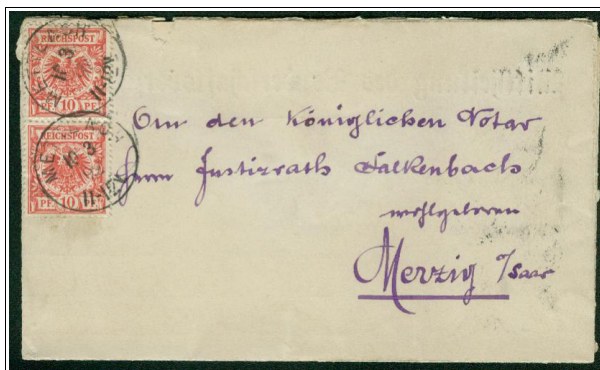 REICHSPOST
10 PF
REICHSPOST
PF 10 PF
An den Königlichen Notar
Herrn Justizrath Falkenbach
wohlgeboren
Merzig a/Saar